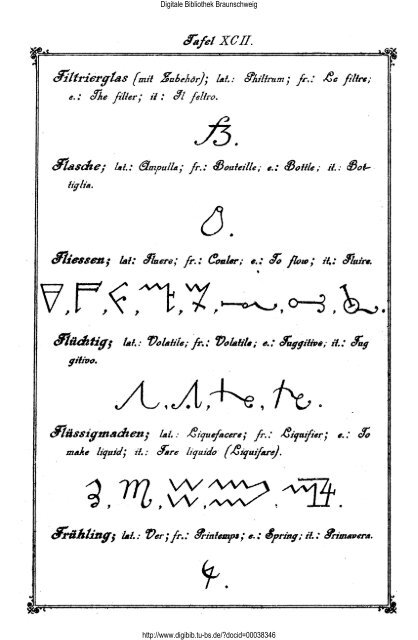 Digitale Bibliothek Braunschweig
Tafel XCII.
Filtrierglas (mit Zubehör); lat.: Philtrum; fr.: Le filtre;
e.: The filter; it: Il feltro.
Flasche; lat.: Ampulla; fr.: Bouteille; e.: Bottle; it.: Bot-
tiglia.
Fliessen; lat: Fluere; fr.: Couler; e.: To flow; it.: Fluire.
Flüchtig; lat.: Volatile; fr.: Volatile; e.: Fuggitive; it.: Fug
gitivo.
Flüssigmachen; lat.: Liquefacere; fr.: Liquifier; e.: To
make liquid; it.: Fare liquido (Liquifare).
Frühling; lat.: Ver; fr.: Printemps; e.: Spring; it.: Primavera.
http://www.digibib.tu-bs.de/?docid=00038346